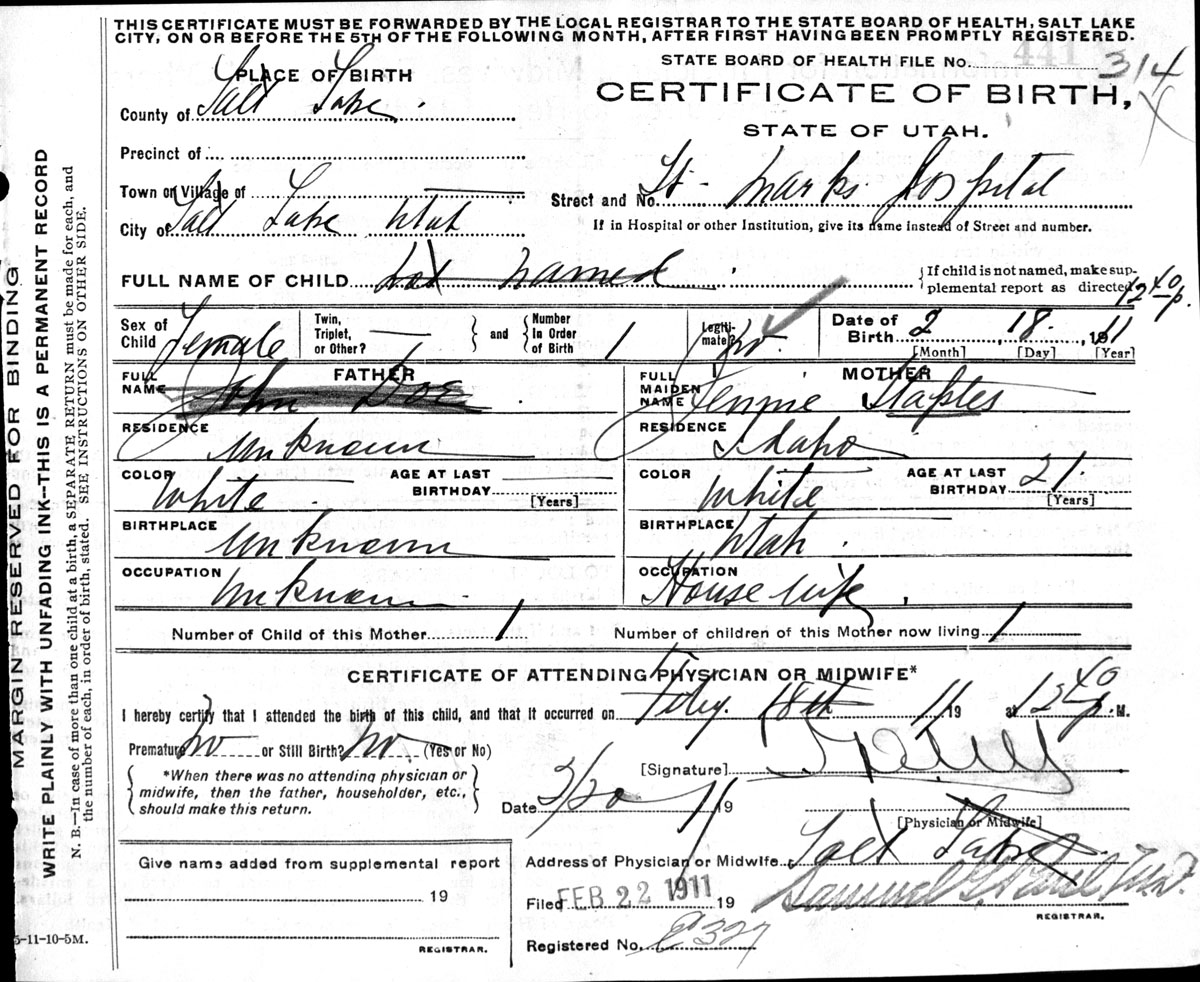 THIS CERTIFICATE MUST BE FORWARDED BY THE LOCAL REGISTRAR TO THE STATE BOARD OF HEALTH, SALT LAKE
CITY, ON OR BEFORE THE 5TH OF THE FOLLOWING MONTH, AFTER FIRST HAVING BEEN PROMPTLY REGISTERED.
MARGIN RESERVED FOR BINDING
WRITE PLAINLY WITH UNFADING INK-THIS IS A PERMANENT RECORD
N. B.—In case of more than one child at a birth, a SEPARATE RETURN must be made for each, and
the number of each, in order of birth, stated. SEE INSTRUCTIONS ON OTHER SIDE.
STATE BOARD OF HEALTH FILE No. 314
PLACE OF BIRTH
CERTIFICATE OF BIRTH,
STATE OF UTAH.
County of Salt Lake.
Precinct of
Town or Village of
Street and No. St. Marks Hospital
City of Salt Lake Utah
If in Hospital or other Institution, give its name instead of Street and number.
FULL NAME OF CHILD Not named
If child is not named, make sup-
plemental report as directed
12 40 p.
Sex of Child Female
Twin, Triplet, or Other?
and
Number In Order of Birth 1
Legiti-mate? No.
Date of Birth 2 18 1911
[Month] [Day] [Year]
FATHER
FULL NAME John Doe
MOTHER
FULL MAIDEN NAME Jennie Staples
RESIDENCE Unknown
RESIDENCE Idaho
COLOR White
AGE AT LAST BIRTHDAY [Years]
COLOR White
AGE AT LAST BIRTHDAY 21. [Years]
BIRTHPLACE Unknown
BIRTHPLACE Utah.
OCCUPATION Unknown
OCCUPATION House wife.
Number of Child of this Mother 1
Number of children of this Mother now living 1
CERTIFICATE OF ATTENDING PHYSICIAN OR MIDWIFE*
I hereby certify that I attended the birth of this child, and that it occurred on Feby. 18th 1911 at 12 40 p. M.
Premature No or Still Birth? No. (Yes or No)
*When there was no attending physician or
midwife, then the father, householder, etc.,
should make this return.
[Signature]
Date 2/20 1911
[Physician or Midwife]
Address of Physician or Midwife Salt Lake
Give name added from supplemental report
19
REGISTRAR.
Filed FEB 22 1911 19
Samuel G. Paul
REGISTRAR.
Registered No. 327
5-11-10-5M.